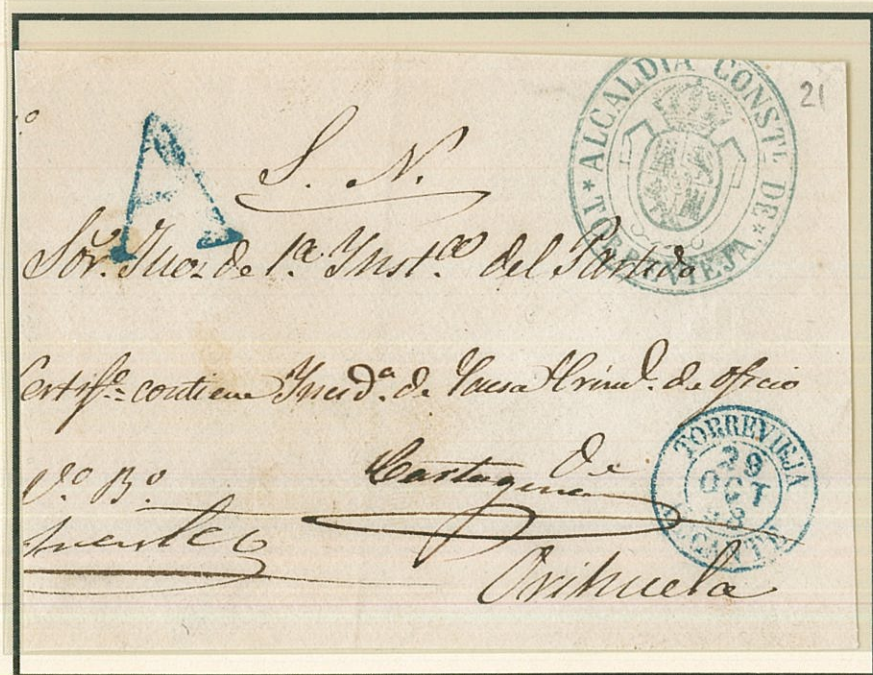 21
ALCALDIA CONSTL DE
TORREVIEJA
A
S. N.
Sór. Juez de 1.ª Inst.ª del Partido
Certif.º contiene Incid.ª de Causa Crim.l de oficio
de
Cartagena
V.º B.º
TORREVIEJA
29
OCT
ALICANTE
Orihuela